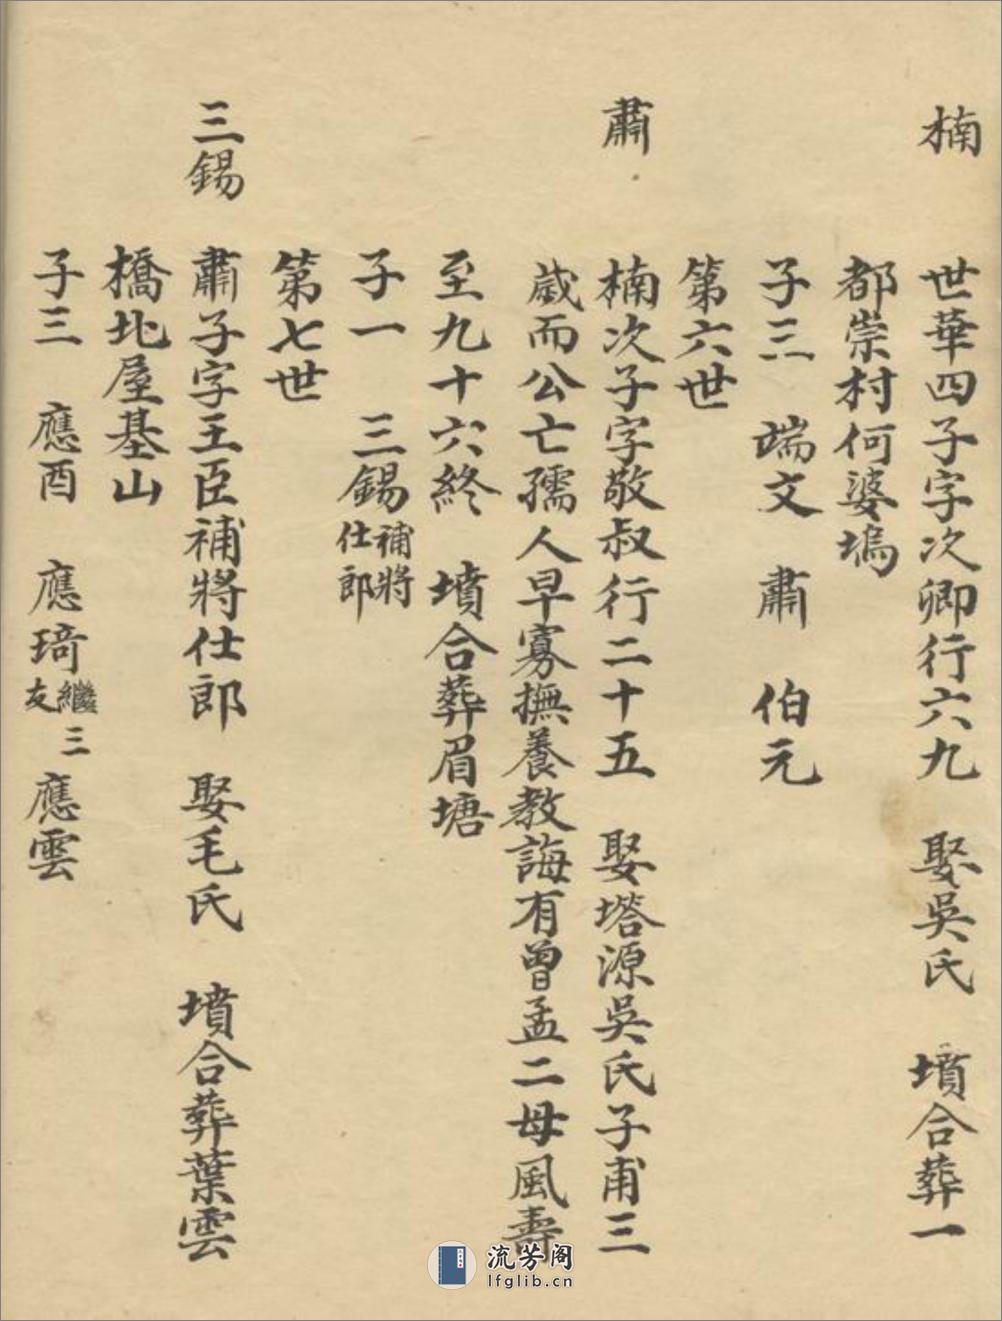 楠　世華四子字次卿行六九　娶吳氏　墳合葬一
都崇村何婆塢
子三　端文　肅　伯元
第六世
肅　楠次子字敬叔行二十五　娶塔源吳氏子甫三
歲而公亡孺人早寡撫養教誨有曾孟二母風壽
至九十六終　墳合葬眉塘
子一　三錫補將仕郎
第七世
三錫　肅子字王臣補將仕郎　娶毛氏　墳合葬葉雲
橋北屋基山
子三　應酉　應琦繼三友　應雲
流芳阁
lfglib.cn